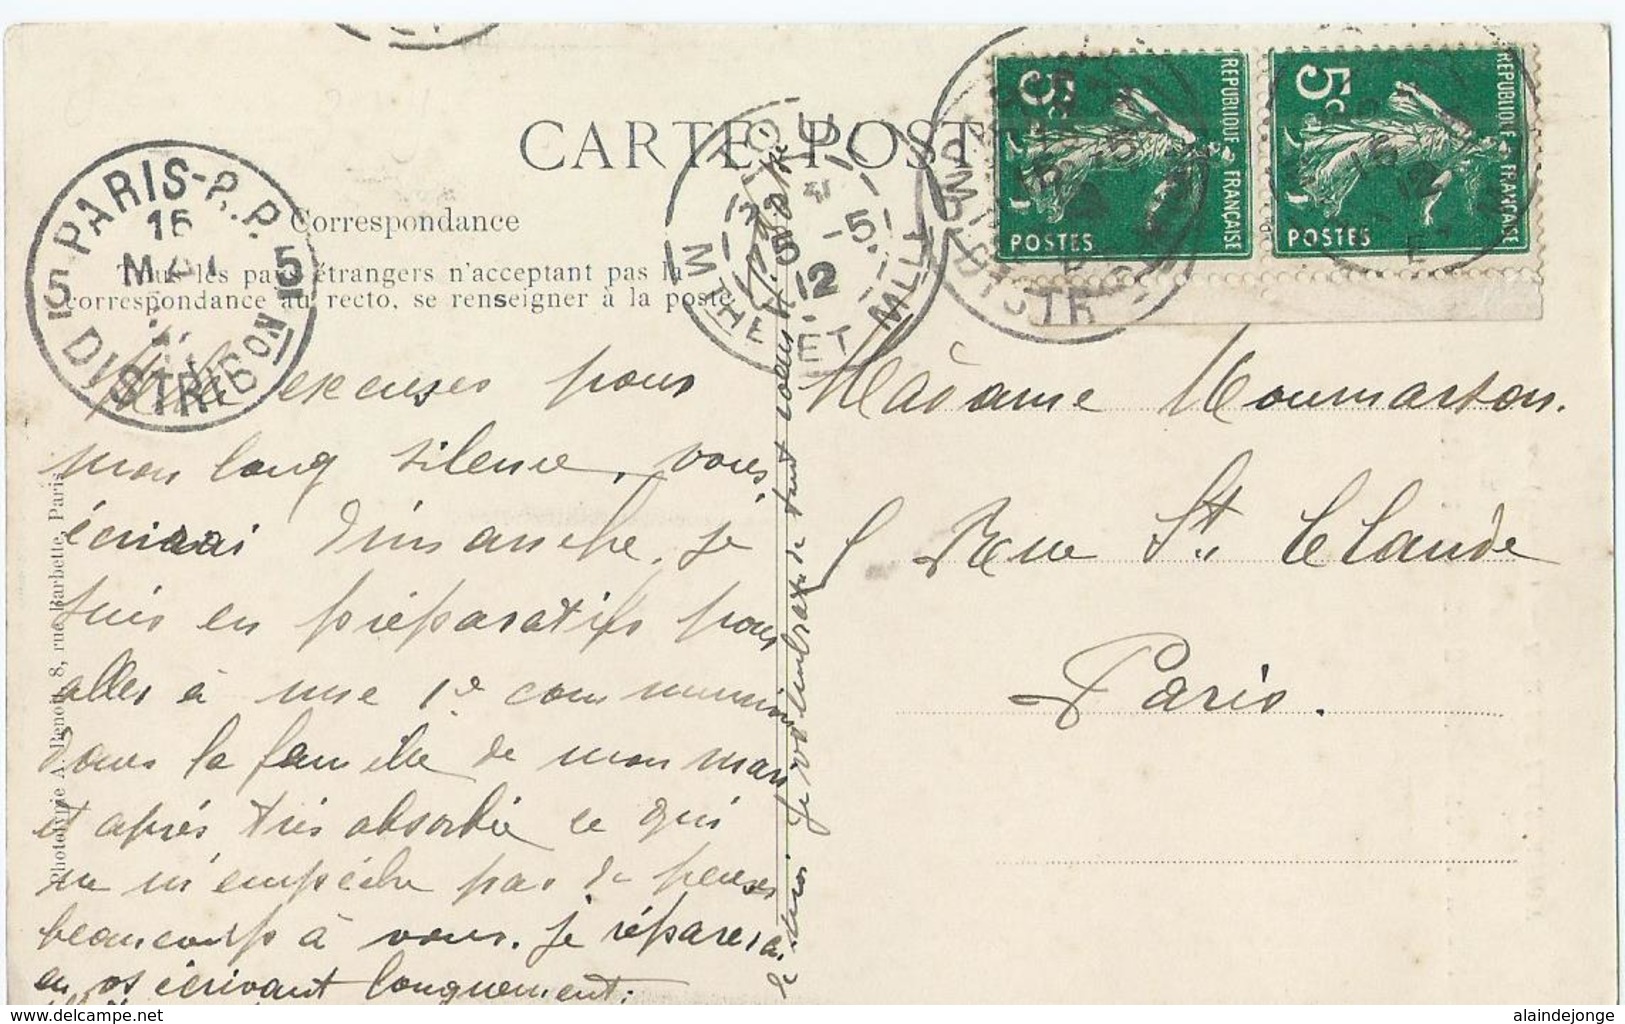 CARTE POST
Correspondance
Tous les pays étrangers n'acceptent pas la
correspondance au recto, se renseigner à la poste
PARIS-R.P.
15
MAI
5 5
DISTRIBON
5
12
MTHE ET MLLE
DISTR
5c
REPUBLIQUE FRANÇAISE
POSTES
5c
REPUBLIQUE FRANÇAISE
POSTES
Mille excuses pour
mon long silence, vous
écrirai Dimanche, je
suis en préparatifs pour
aller à une 1e communion
dans la famille de mon mari
et après très absorbée ce qui
ne m'empêche pas de penser
beaucoup à vous. Je réparerai
en vs écrivant longuement.
Je vous embrasse de tout
Madame Moumarson.
5 Rue St. Claude
Paris.
Phototypie A. Benoit, 8, rue Barbette, Paris
www.delcampe.net
alaindejonge